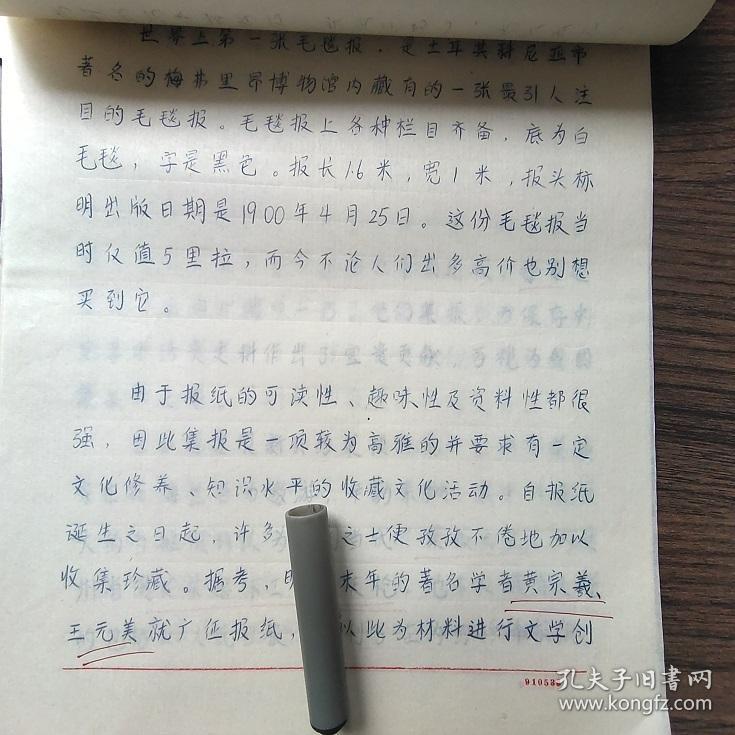 世界上第一张毛毯报，是土耳其科尼亚市
著名的梅弗里昂博物馆内藏有的一张最引人注
目的毛毯报。毛毯报上各种栏目齐备，底为白
毛毯，字是黑色。报长1.6米，宽1米，报头标
明出版日期是1900年4月25日。这份毛毯报当
时仅值5里拉，而今不论人们出多高价也别想
买到它。
由于报纸的可读性、趣味性及资料性都很
强，因此集报是一项较为高雅的并要求有一定
文化修养、知识水平的收藏文化活动。自报纸
诞生之日起，许多 之士便孜孜不倦地加以
收集珍藏。据考，明 末年的著名学者黄宗羲、
王元美就广征报纸， 以此为材料进行文学创
91053
孔夫子旧书网
www.kongfz.com